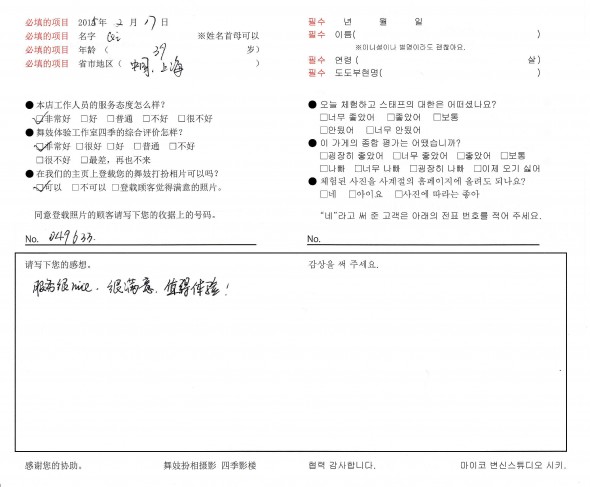 必填的项目 2015年 2 月 17 日
必填的项目 名字 Qi ※姓名首母可以
必填的项目 年龄 ( 39 岁)
必填的项目 省市地区 ( 中国、上海 )
●本店工作人员的服务态度怎么样?
☑非常好 □好 □普通 □不好 □很不好
●舞妓体验工作室四季的综合评价怎样?
☑非常好 □很好 □好 □普通 □不好
□很不好 □最差，再也不来
●在我们的主页上登载您的舞妓打扮相片可以吗?
☑可以 □不可以 □登载顾客觉得满意的照片。
同意登载照片的顾客请写下您的收据上的号码。
No. 049633.
请写下您的感想。
服务很nice. 很满意. 值得体验!
感谢您的协助。 舞妓扮相摄影 四季影楼
필수 년 월 일
필수 이름( )
※이니셜이나 별명이라도 괜찮아요.
필수 연령 ( 살)
필수 도도부현명( )
● 오늘 체험하고 스태프의 대한은 어떠셨나요?
□너무 좋았어 □좋았어 □보통
□안됬어 □너무 안됬어
● 이 가게의 종합 평가는 어땠습니까?
□굉장히 좋았어 □너무 좋았어 □좋았어 □보통
□나빠 □너무 나빠 □굉장히 나빠 □이제 오기 싫어
● 체험된 사진을 사계절의 홈페이지에 올려도 되나요?
□네 □아이요 □사진에 따라는 좋아
“네”라고 써 준 고객은 아래의 전표 번호를 적어 주세요.
No.
감상을 써 주세요.
협력 감사합니다. 마이코 변신스튜디오 시키.